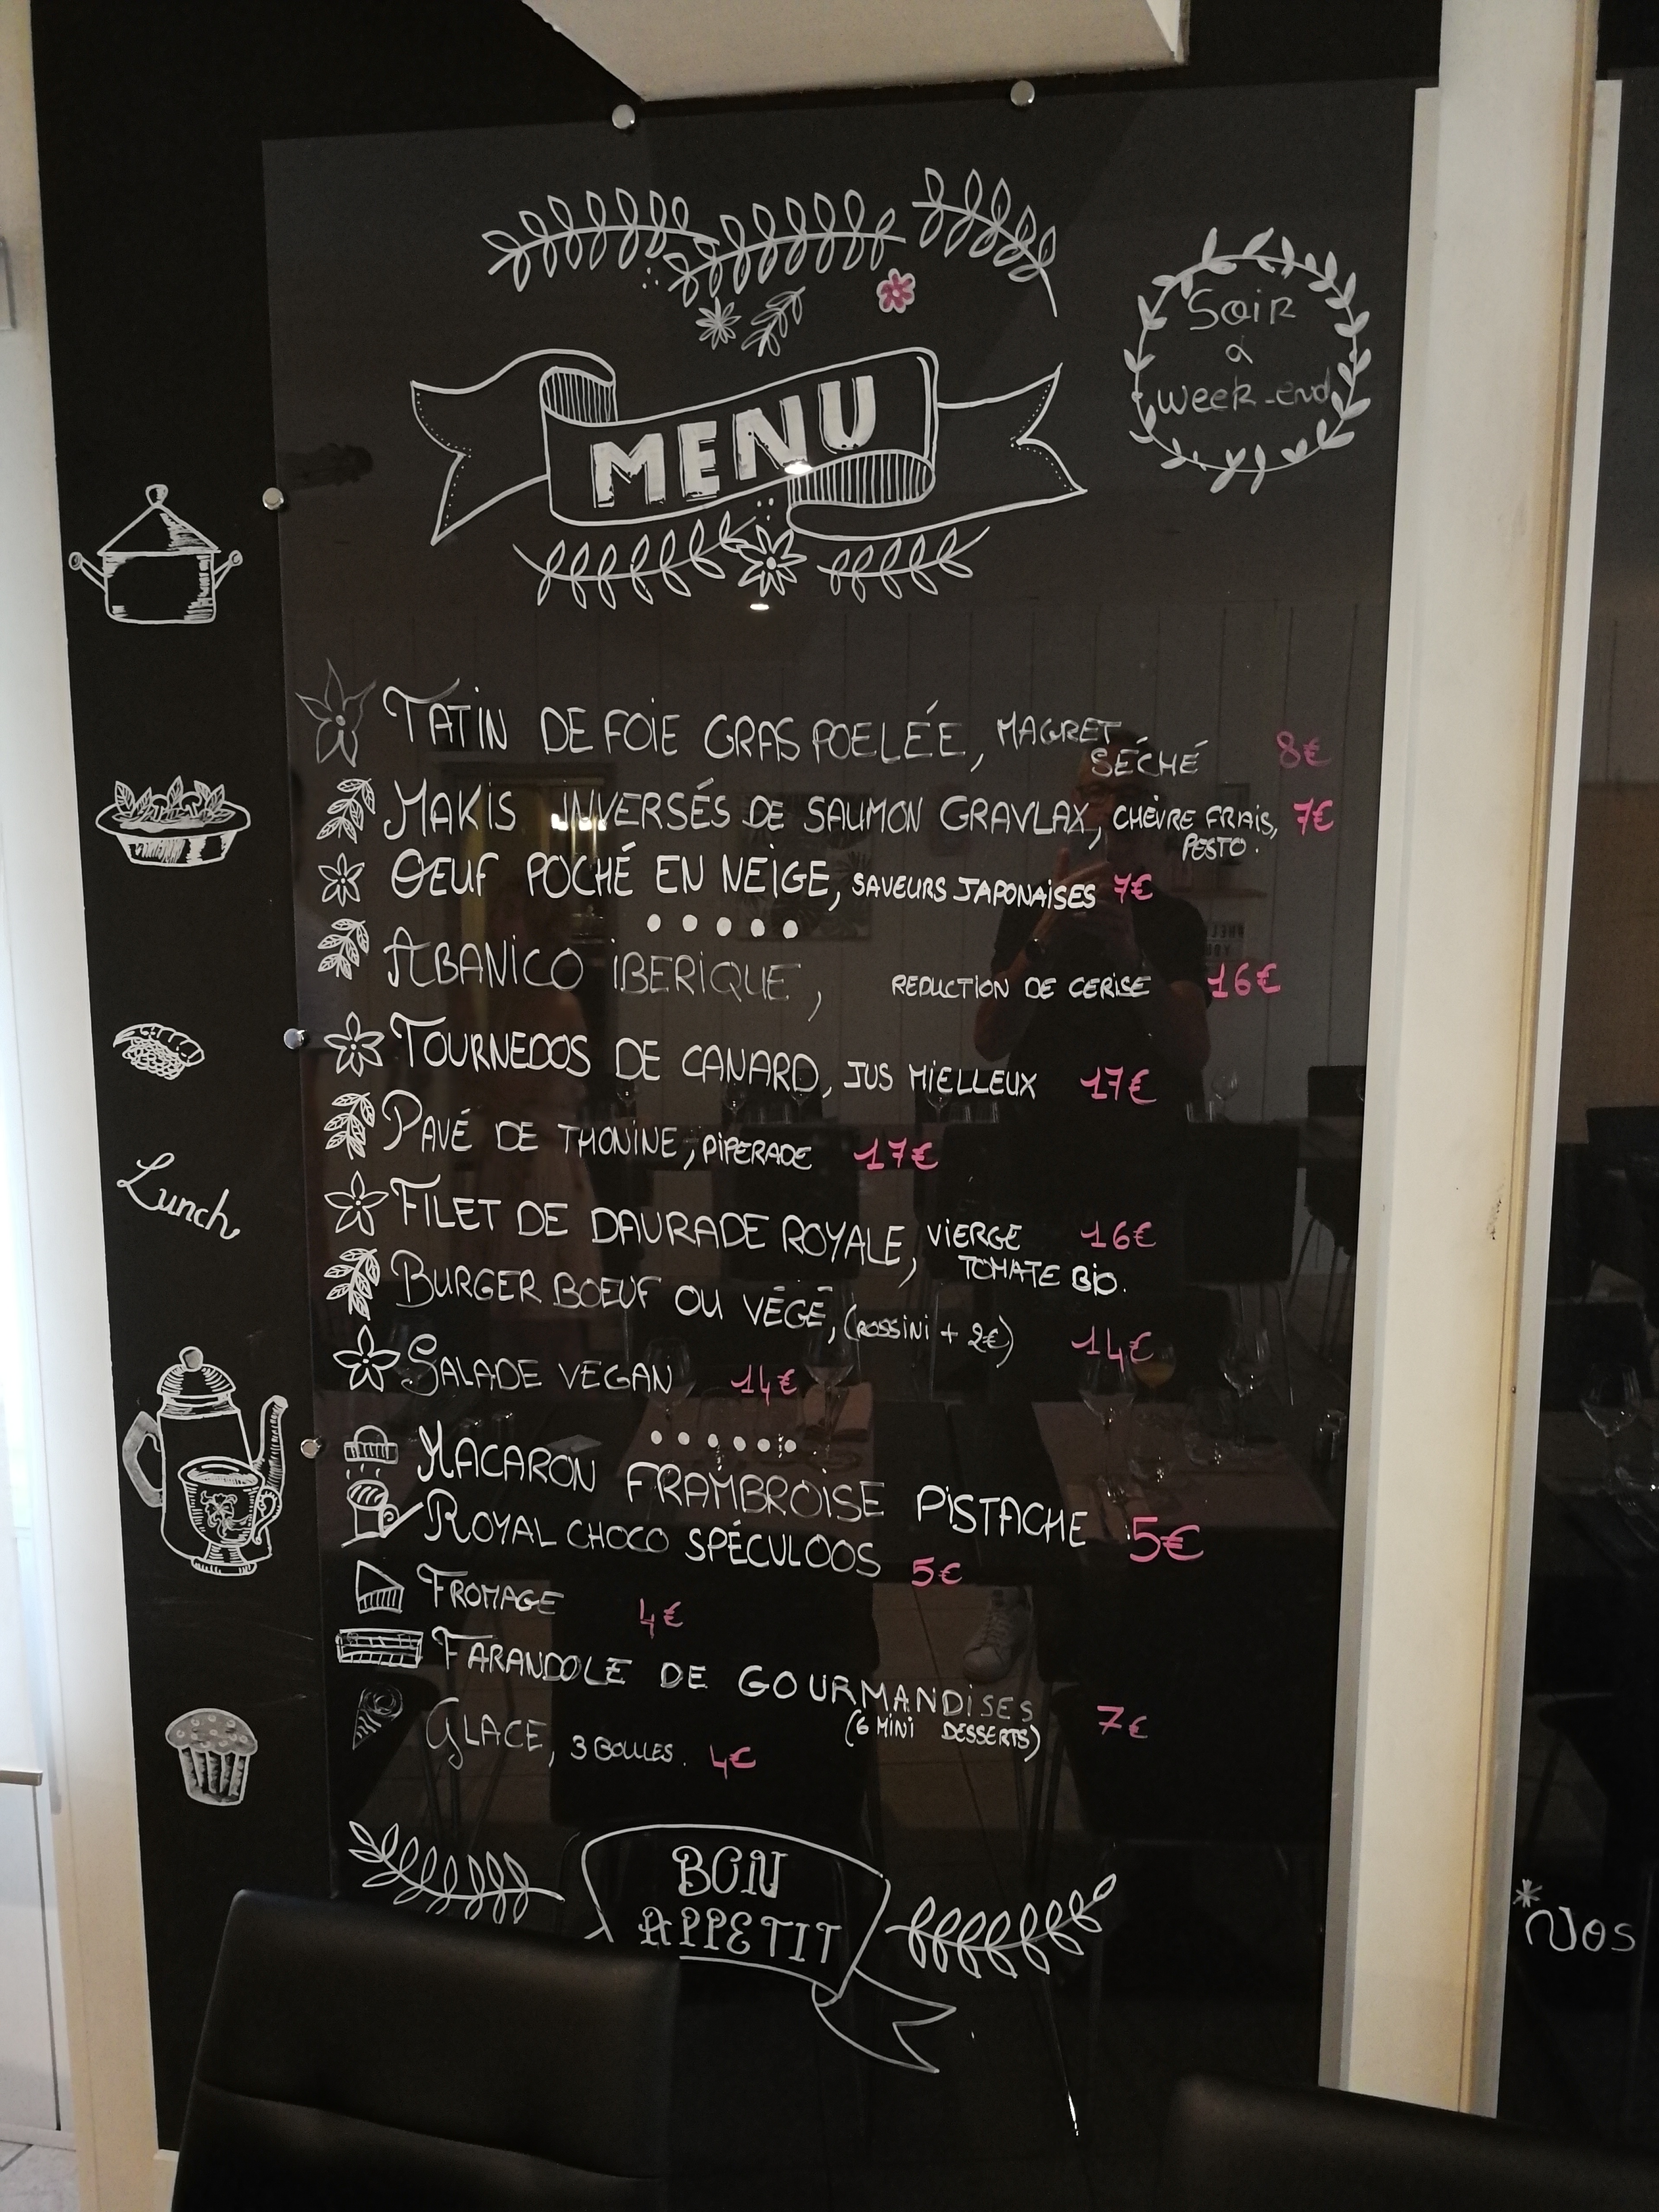 Soir
&
week-end
MENU
TATIN DE FOIE GRAS POELÉE, MAGRET
SÉCHÉ 8€
MAKIS INVERSÉS DE SAUMON GRAVLAX, CHÈVRE FRAIS, 7€
PESTO.
OEUF POCHÉ EN NEIGE, SAVEURS JAPONAISES 7€
ABANICO IBERIQUE, REDUCTION DE CERISE 16€
TOURNEDOS DE CANARD, JUS MIELLEUX 17€
PAVÉ DE THONINE, PIPERADE 17€
Lunch
FILET DE DAURADE ROYALE, VIERGE 16€
TOMATE BIO.
BURGER BOEUF OU VÉGÉ, (ROSSINI + 2€) 14€
SALADE VEGAN 14€
MACARON FRAMBROISE PISTACHE 5€
ROYAL CHOCO SPÉCULOOS 5€
FROMAGE 4€
FARANDOLE DE GOURMANDISES 7€
(6 MINI DESSERTS)
GLACE, 3 BOULES. 4€
BON
APPETIT
*Nos